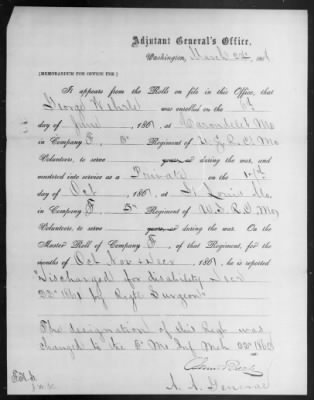 Adjutant General's Office,
Washington, March 186
[MEMORANDUM FOR OFFICE USE]
It appears from the Rolls on file in this Office, that
George was enrolled on the
day of June, 1861, at Carondelet Mo
in Company F, 5" Regiment of U.S.R.C. Mo
Volunteers, to serve years, or during the war, and
mustered into service as a Private on the
day of Oct, 1861, at St Louis Mo.
in Company F 5" Regiment of U.S.R.C. Mo
Volunteers, to serve years, or during the war. On the
Muster Roll of Company F, of that Regiment, for the
months of Oct Nov & Dec, 1861, he is reported
"Discharged for disability Decr
22" 1861 by Regtl Surgeon"
The designation of this Regt was
changed to the 5" Mo Inf Mch 1862
A. A. General